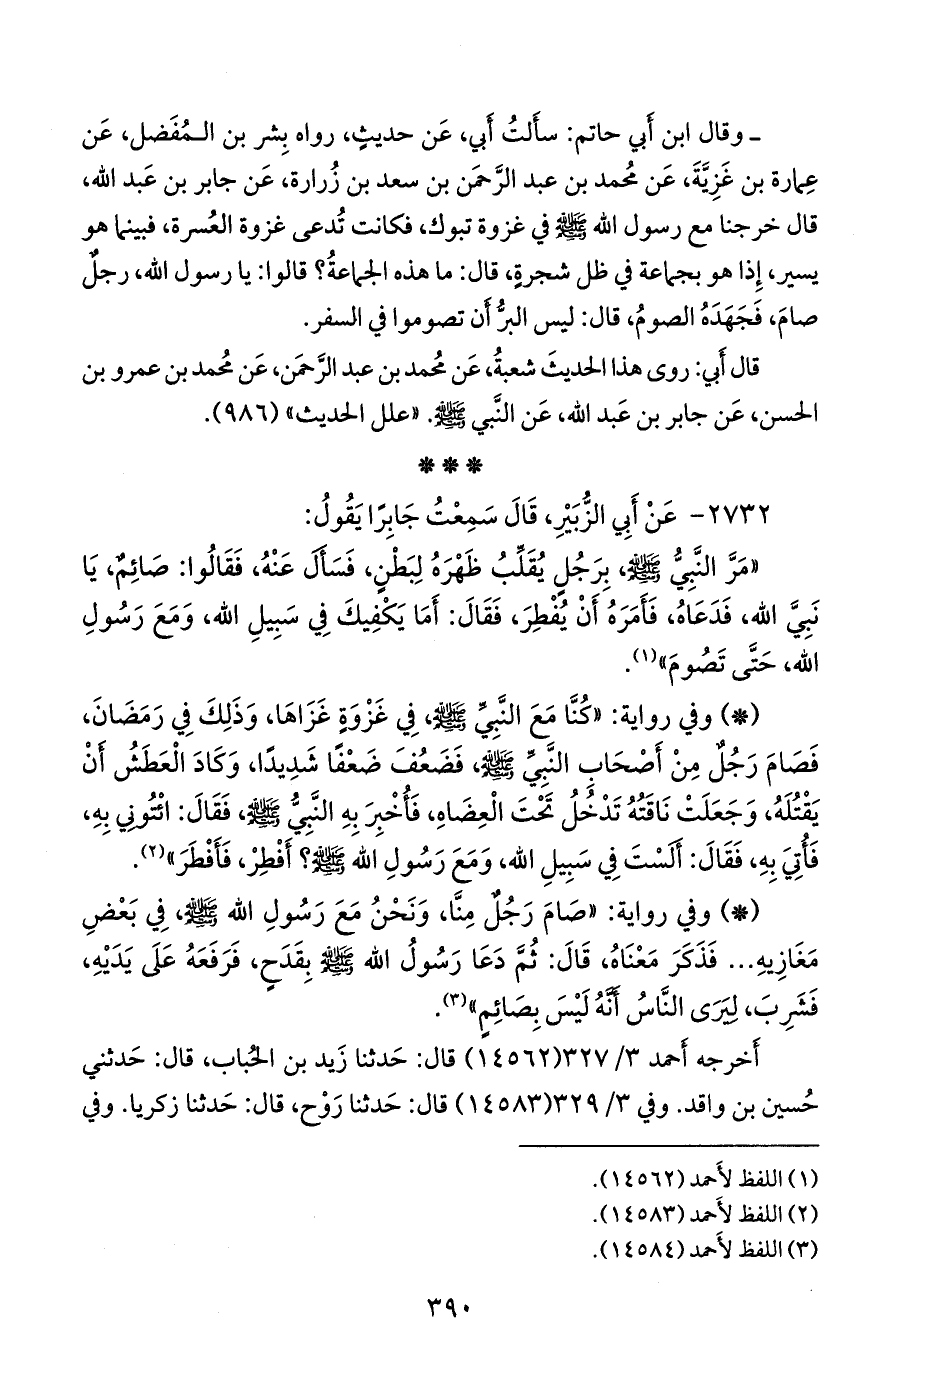 ـ وقال ابن أَبي حاتم: سأَلتُ أَبي، عَن حديثٍ، رواه بِشر بن الـمُفَضل، عَن
عِمارة بن غَزِيَّةَ، عَن مُحمد بن عبد الرَّحمَن بن سعد بن زُرارة، عَن جابر بن عَبد الله،
قال خرجنا مع رسول الله ﷺ في غزوة تبوك، فكانت تُدعى غزوة العُسرة، فبينما هو
يسير، إِذا هو بجماعة في ظل شجرةٍ، قال: ما هذه الجماعةُ؟ قالوا: يا رسول الله، رجلٌ
صامَ، فَجَهَدَهُ الصومُ، قال: ليس البرُّ أَن تصوموا في السفر.
قال أَبي: روى هذا الحديثَ شعبةُ، عَن مُحمد بن عبد الرَّحمَن، عَن مُحمد بن عمرو بن
الحسن، عَن جابر بن عَبد الله، عَن النَّبي ﷺ. «علل الحديث» (٩٨٦).
***
٢٧٣٢- عَنْ أَبِي الزُّبَيْرِ، قَالَ سَمِعْتُ جَابِرًا يَقُولُ:
«مَرَّ النَّبِيُّ ﷺ، بِرَجُلٍ يُقَلِّبُ ظَهْرَهُ لِبَطْنٍ، فَسَأَلَ عَنْهُ، فَقَالُوا: صَائِمٌ، يَا
نَبِيَّ الله، فَدَعَاهُ، فَأَمَرَهُ أَنْ يُفْطِرَ، فَقَالَ: أَمَا يَكْفِيكَ فِي سَبِيلِ الله، وَمَعَ رَسُولِ
الله، حَتَّى تَصُومَ»(١).
(*) وفي رواية: «كُنَّا مَعَ النَّبِيِّ ﷺ، فِي غَزْوَةٍ غَزَاهَا، وَذَلِكَ فِي رَمَضَانَ،
فَصَامَ رَجُلٌ مِنْ أَصْحَابِ النَّبِيِّ ﷺ، فَضَعُفَ ضَعْفًا شَدِيدًا، وَكَادَ الْعَطَشُ أَنْ
يَقْتُلَهُ، وَجَعَلَتْ نَاقَتُهُ تَدْخُلُ تَحْتَ الْعِضَاهِ، فَأُخْبِرَ بِهِ النَّبِيُّ ﷺ، فَقَالَ: ائْتُونِي بِهِ،
فَأُتِيَ بِهِ، فَقَالَ: أَلَسْتَ فِي سَبِيلِ الله، وَمَعَ رَسُولِ الله ﷺ؟ أَفْطِرْ، فَأَفْطَرَ»(٢).
(*) وفي رواية: «صَامَ رَجُلٌ مِنَّا، وَنَحْنُ مَعَ رَسُولِ الله ﷺ، فِي بَعْضِ
مَغَازِيهِ... فَذَكَرَ مَعْنَاهُ، قَالَ: ثُمَّ دَعَا رَسُولُ الله ﷺ بِقَدَحٍ، فَرَفَعَهُ عَلَى يَدَيْهِ،
فَشَرِبَ، لِيَرَى النَّاسُ أَنَّهُ لَيْسَ بِصَائِمٍ»(٣).
أَخرجه أَحمد ٣/ ٣٢٧(١٤٥٦٢) قال: حَدثنا زَيد بن الحُباب، قال: حَدثني
حُسين بن واقد. وفي ٣/ ٣٢٩(١٤٥٨٣) قال: حَدثنا رَوْح، قال: حَدثنا زكريا. وفي
(١) اللفظ لأَحمد (١٤٥٦٢).
(٢) اللفظ لأَحمد (١٤٥٨٣).
(٣) اللفظ لأَحمد (١٤٥٨٤).
٣٩٠